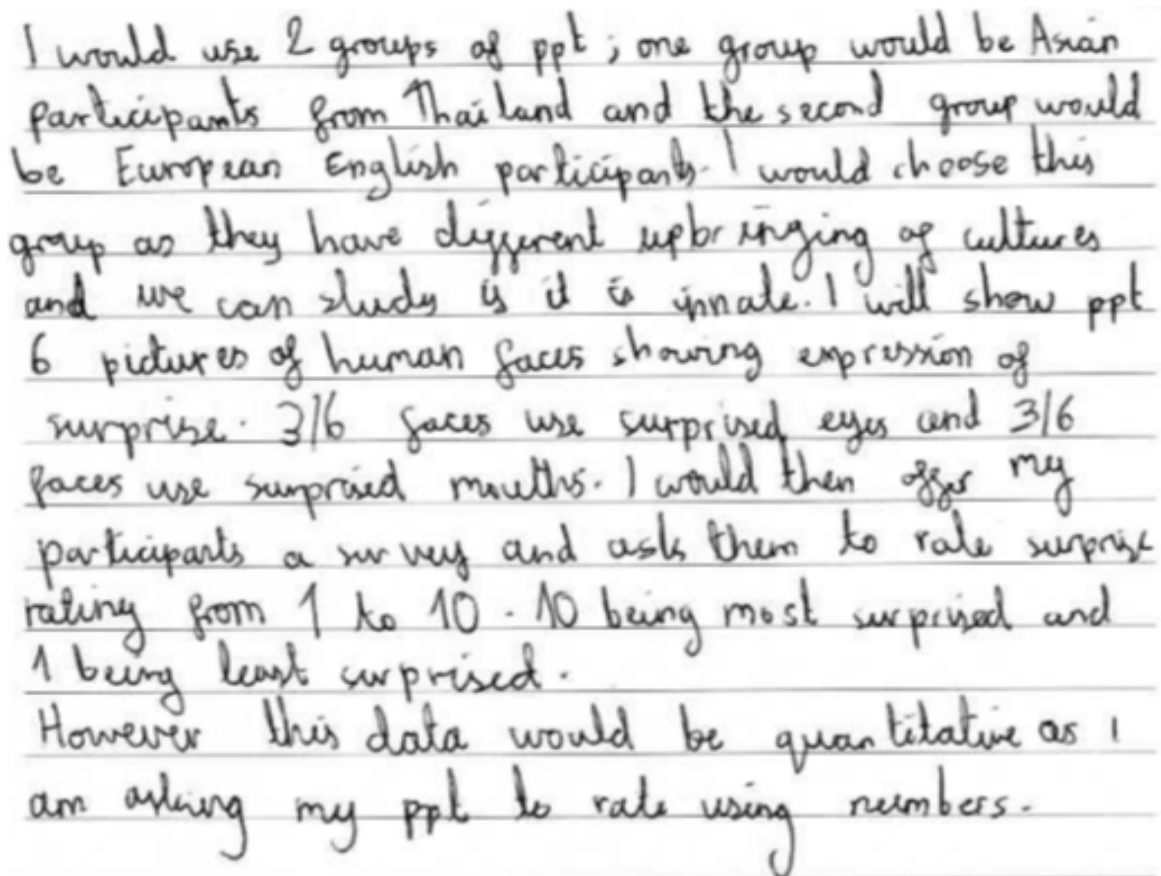 I would use 2 groups of ppt ; one group would be Asian
participants from Thailand and the second group would
be European English participants. I would choose this
group as they have different upbringing of cultures
and we can study is it is innate. I will show ppt
6 pictures of human faces showing expression of
surprise. 3/6 faces use surprised eyes and 3/6
faces use surprised mouths. I would then offer my
participants a survey and asks them to rate surprise
rating from 1 to 10 - 10 being most surprised and
1 being least surprised.
However this data would be quantitative as I
am asking my ppt to rate using numbers.